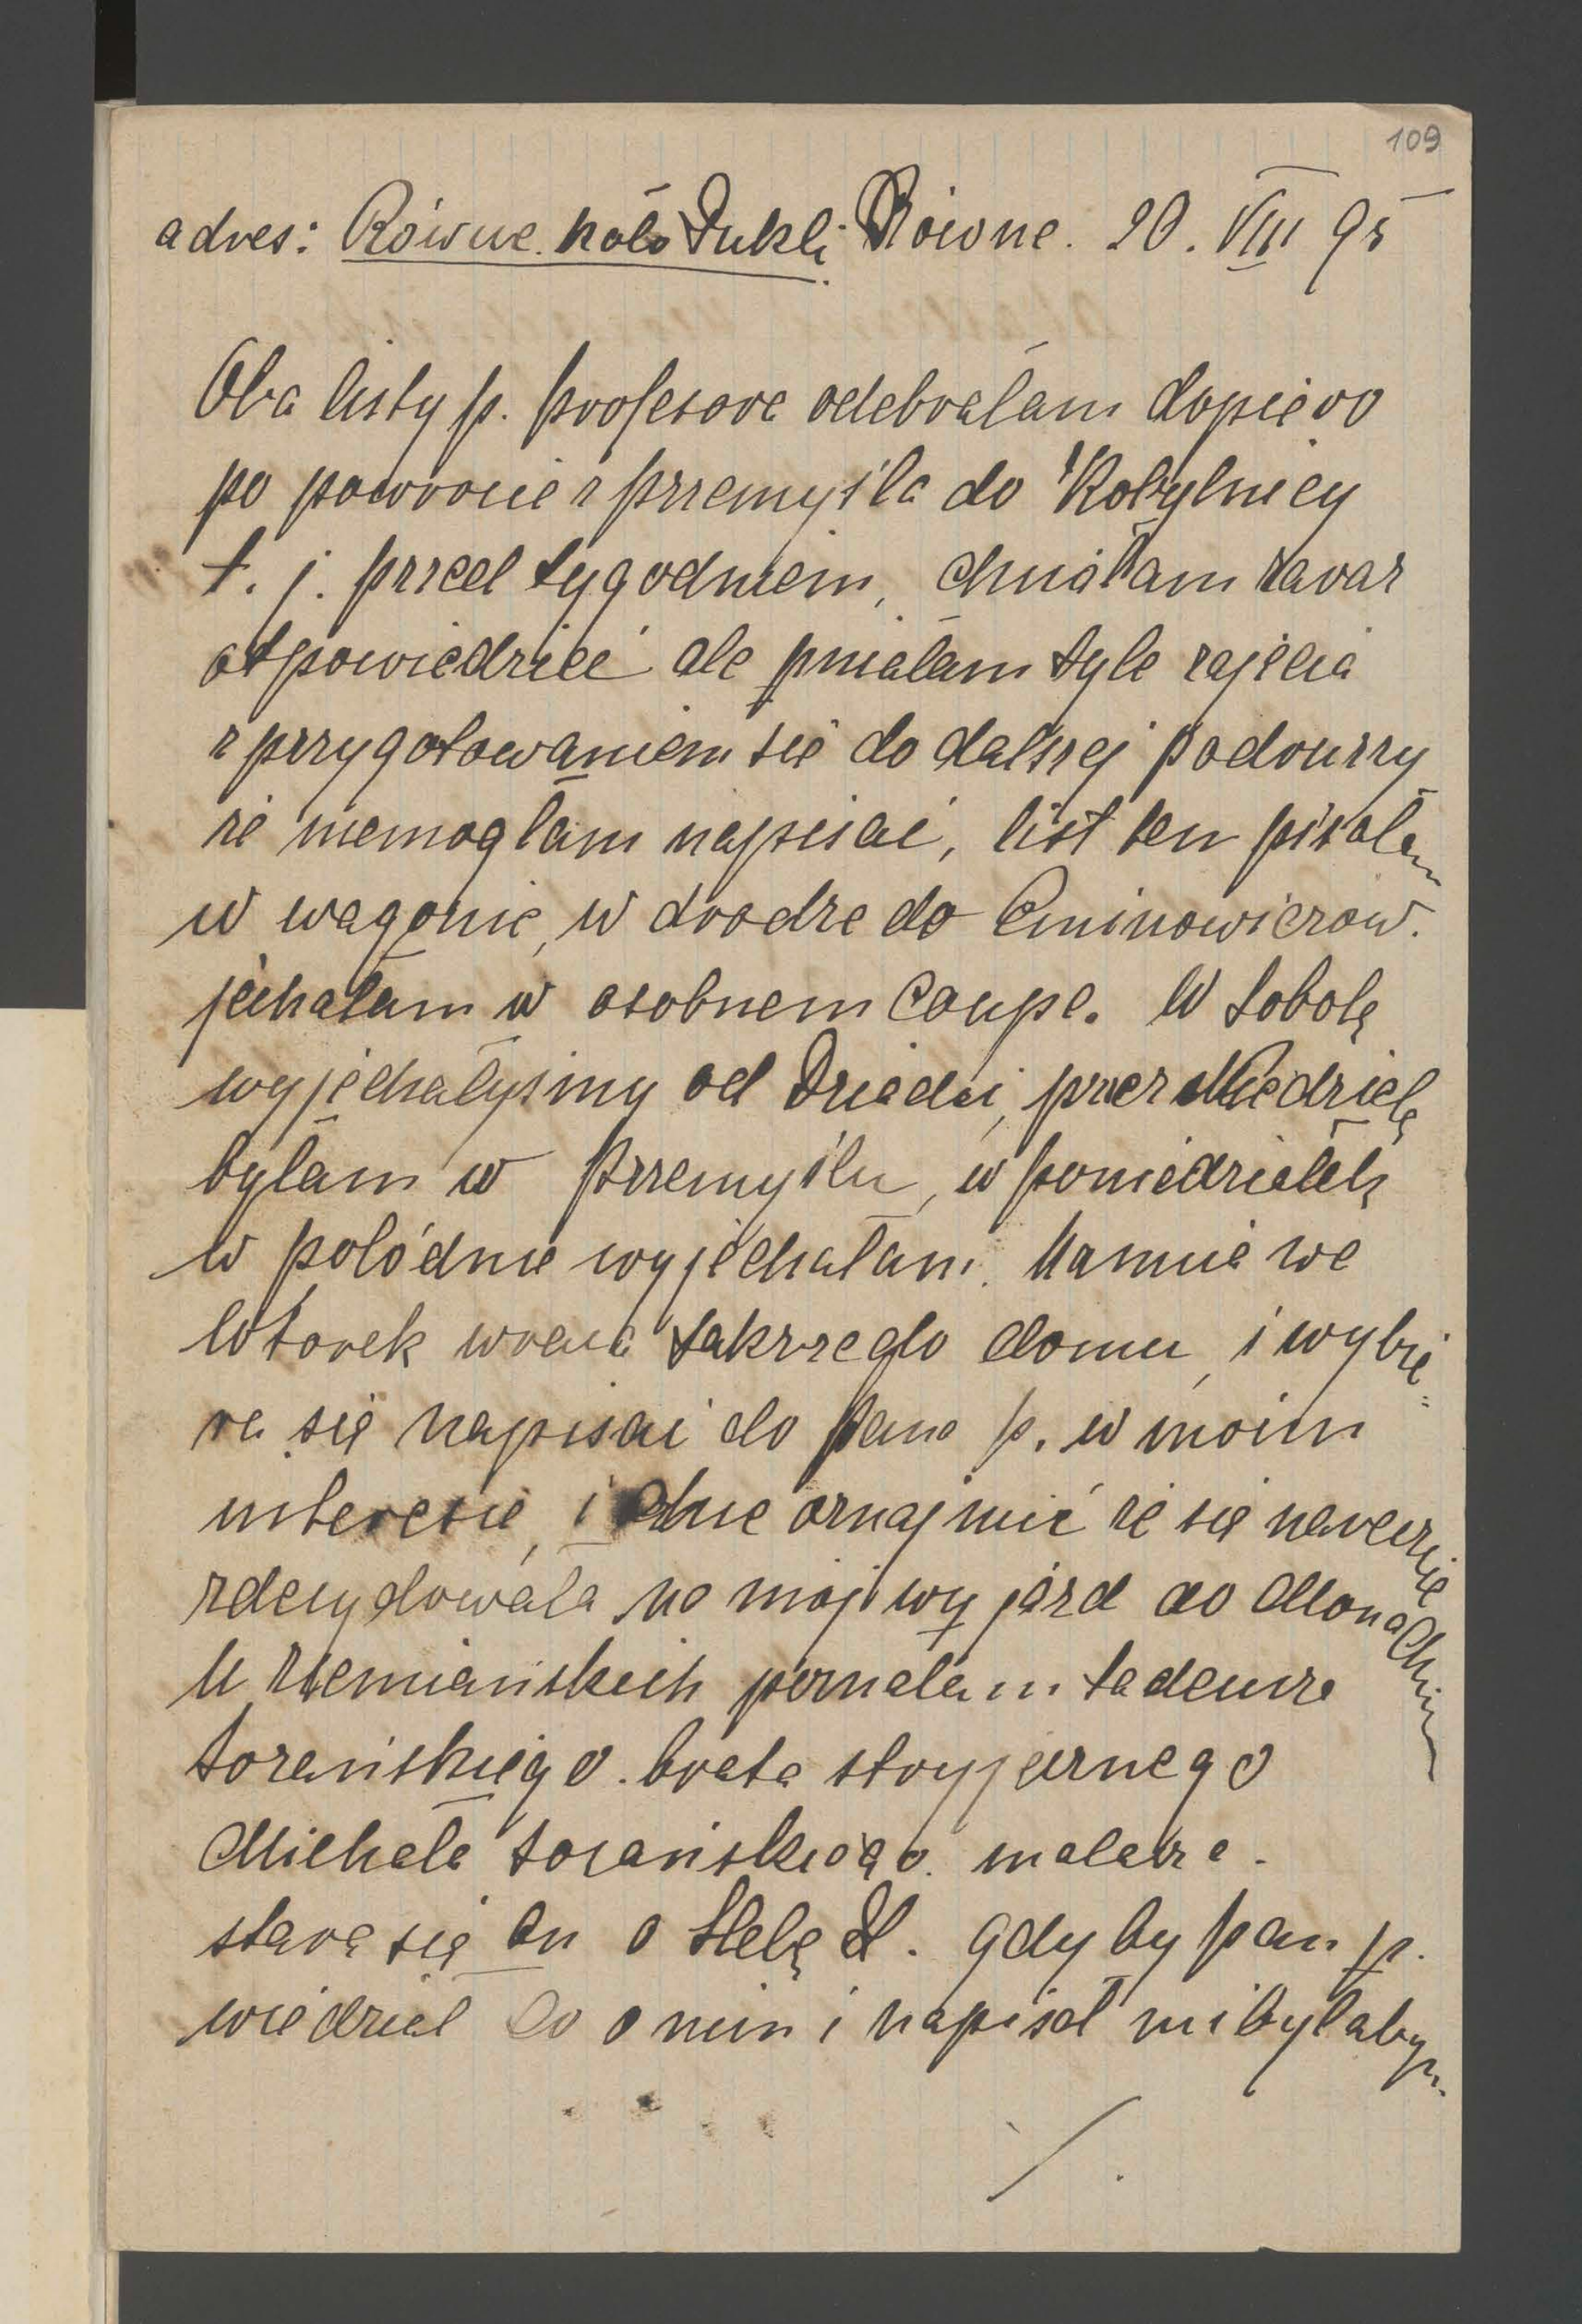 109
adres: Równe. koło Dukli. Równe. 20. VIII 95
Oba listy p. profesora odebrałam dopiero
po powrocie z przemyśla do Kobylnicy
t. j. przed tygodniem, chciałam zaraz
otpowiedzieć ale miałam tyle zajęcia
z przygotowaniem się do dalszej podóurzy
że niemogłam napisać, list ten pisałam
w wagonie, w drodze do Eminowiczów.
jechałam w osobnem Coupe. W Sobotę
wyjechałyśmy od Dziedzi, przez Niedzielę
byłam w Przemyślu, w poniedziałek
w połódnie wyjechałam. Mamcia we
Wtorek wraca takrze do domu, i wybie=
ra się napisać do pana p. w moim
interesie, i chce oznajmić że się nareszcie
zdecydowała na mój wyjazd do Monachium
U Ziemiańskich poznałam tadeusza
Sozańskiego. brata stryjecznego
Michała Sozańskiego. malarza.
stara się on o Helę Z. gdyby pan p.
wiedział co o nim i napisał mi byłabym
/.